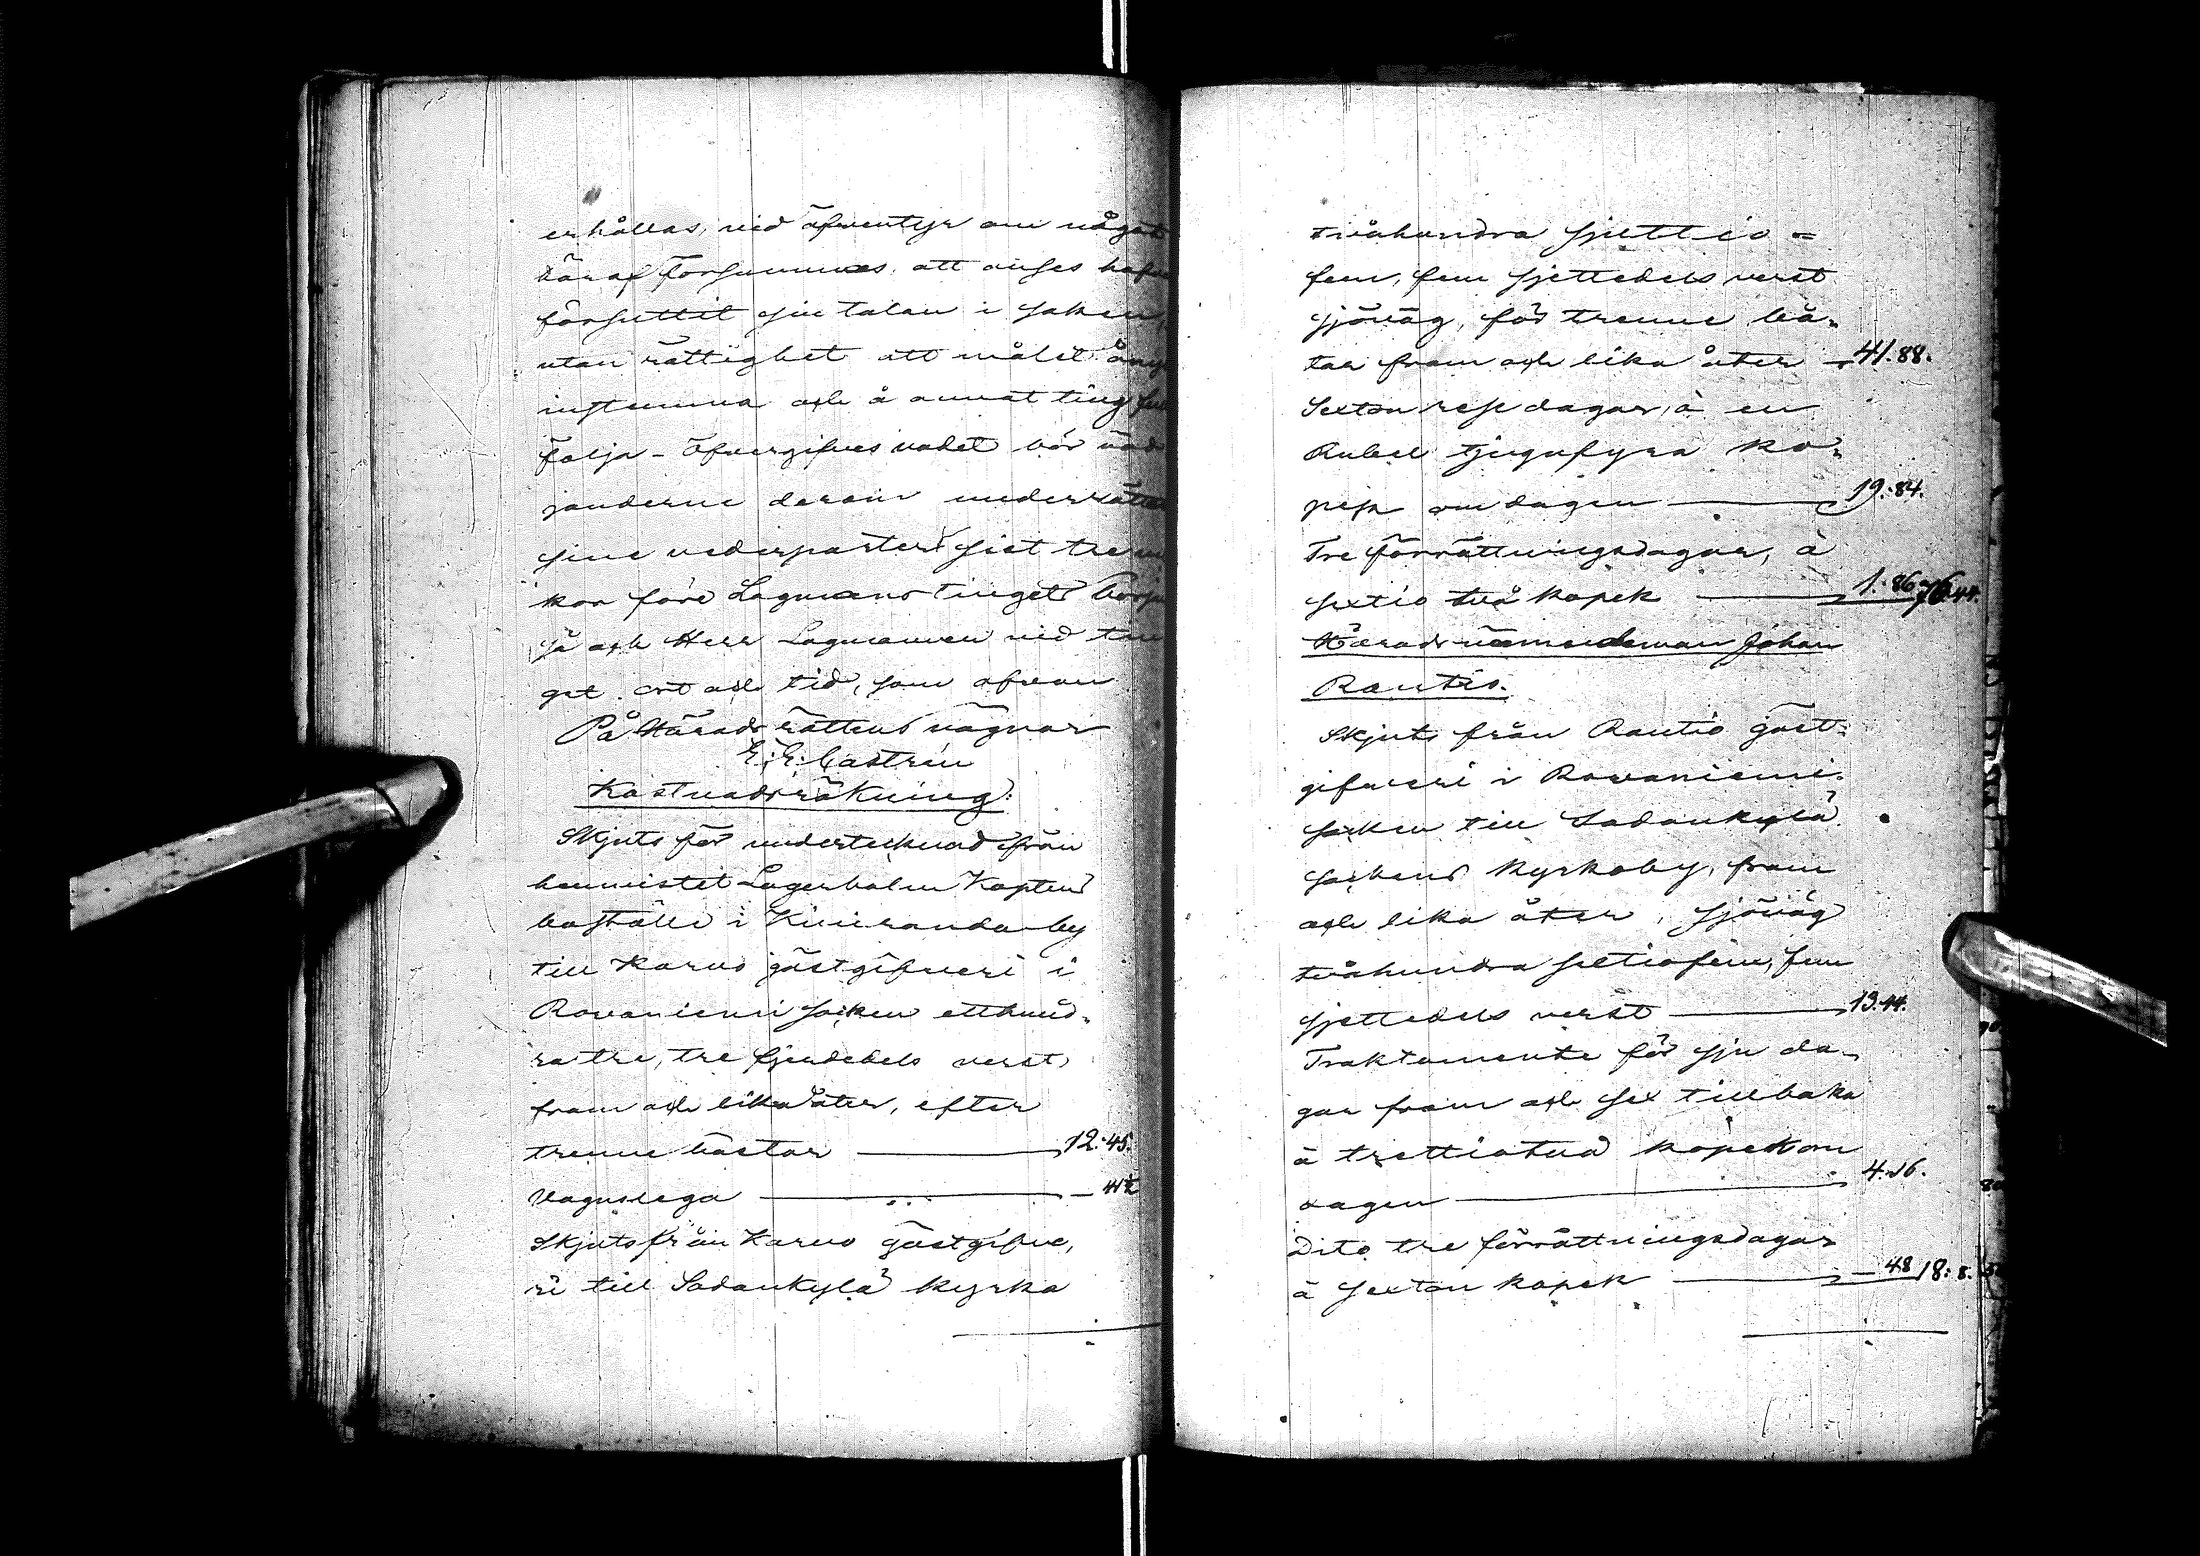 erhållas, vid äfventyr om något
häraf försummas, att anses hafva
försuttit sin talan i saken,
utan rättighet att målet ånyo
instemma och å annat ting full
följa - Öfvergifves vadet bör väd
janderne derom underrätta
sine vederparter sist tre vec
kor före Lagmans tinget börjas
så och Herr Lagmannen vid tin
get ort och tid, som ofvan
På Härads rättens vägnar
E: E: Castrén
Kostnadsräkning:
Skjuts för undertecknad från
hemmistet Lagerholm Kaptens
boställe i Kiviranda by
till Karvo gästgifveri i
Rovaniemi socken etthund-
ra tre, tre fjerdedels verst,
fram och lika åter, efter
trenne hästar 12.45.
Vagnslega — 41½
Skjuts från Karvo gästgifve,
ri till Sodankylä kyrka
tvåhundra sjettio =
fem, fem sjettedels verst
sjöväg, för trenne bå-
tar fram och lika åter 41.88.
Sexton resedagar, à en
Rubel tjugufyra ko-
pek om dagen 19.84.
Tre förrättningsdagar, à
sextio två kopek 1.86 76.44.
Härads nämndeman Johan
Rautio.
Skjuts från Rautio gäst-
gifveri i Rovaniemi
socken till Sodankylä
sockens Kyrkoby, fram
och lika åter, sjöväg
tvåhundra sextiofem, fem
sjettedels verst 13.44.
Traktamente för sju da-
gar fram och sex tillbaka
à trettiotvå kopek om
dagen 4.16.
Dito tre förrättningsdagar
à sexton kopek — 48 18: 8.